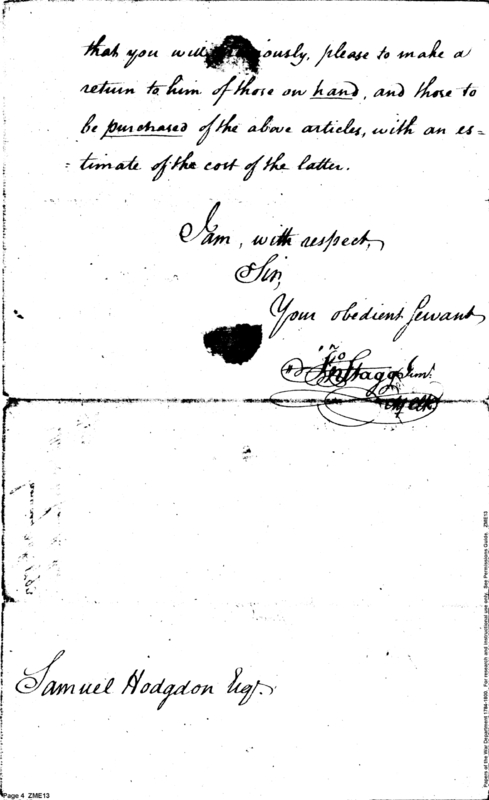 that you will previously, please to make a
return to him of those on hand, and those to
be purchased of the above articles, with an es=
=timate of the cost of the latter.
I am, with respect,
Sir,
Your obedient Servant
Jno Stagg Junr.
Samuel Hodgdon Esqr.
Page 4 ZME13
Papers of the War Department 1784-1800. For research and instructional use only. See Permissions Guide. ZME13